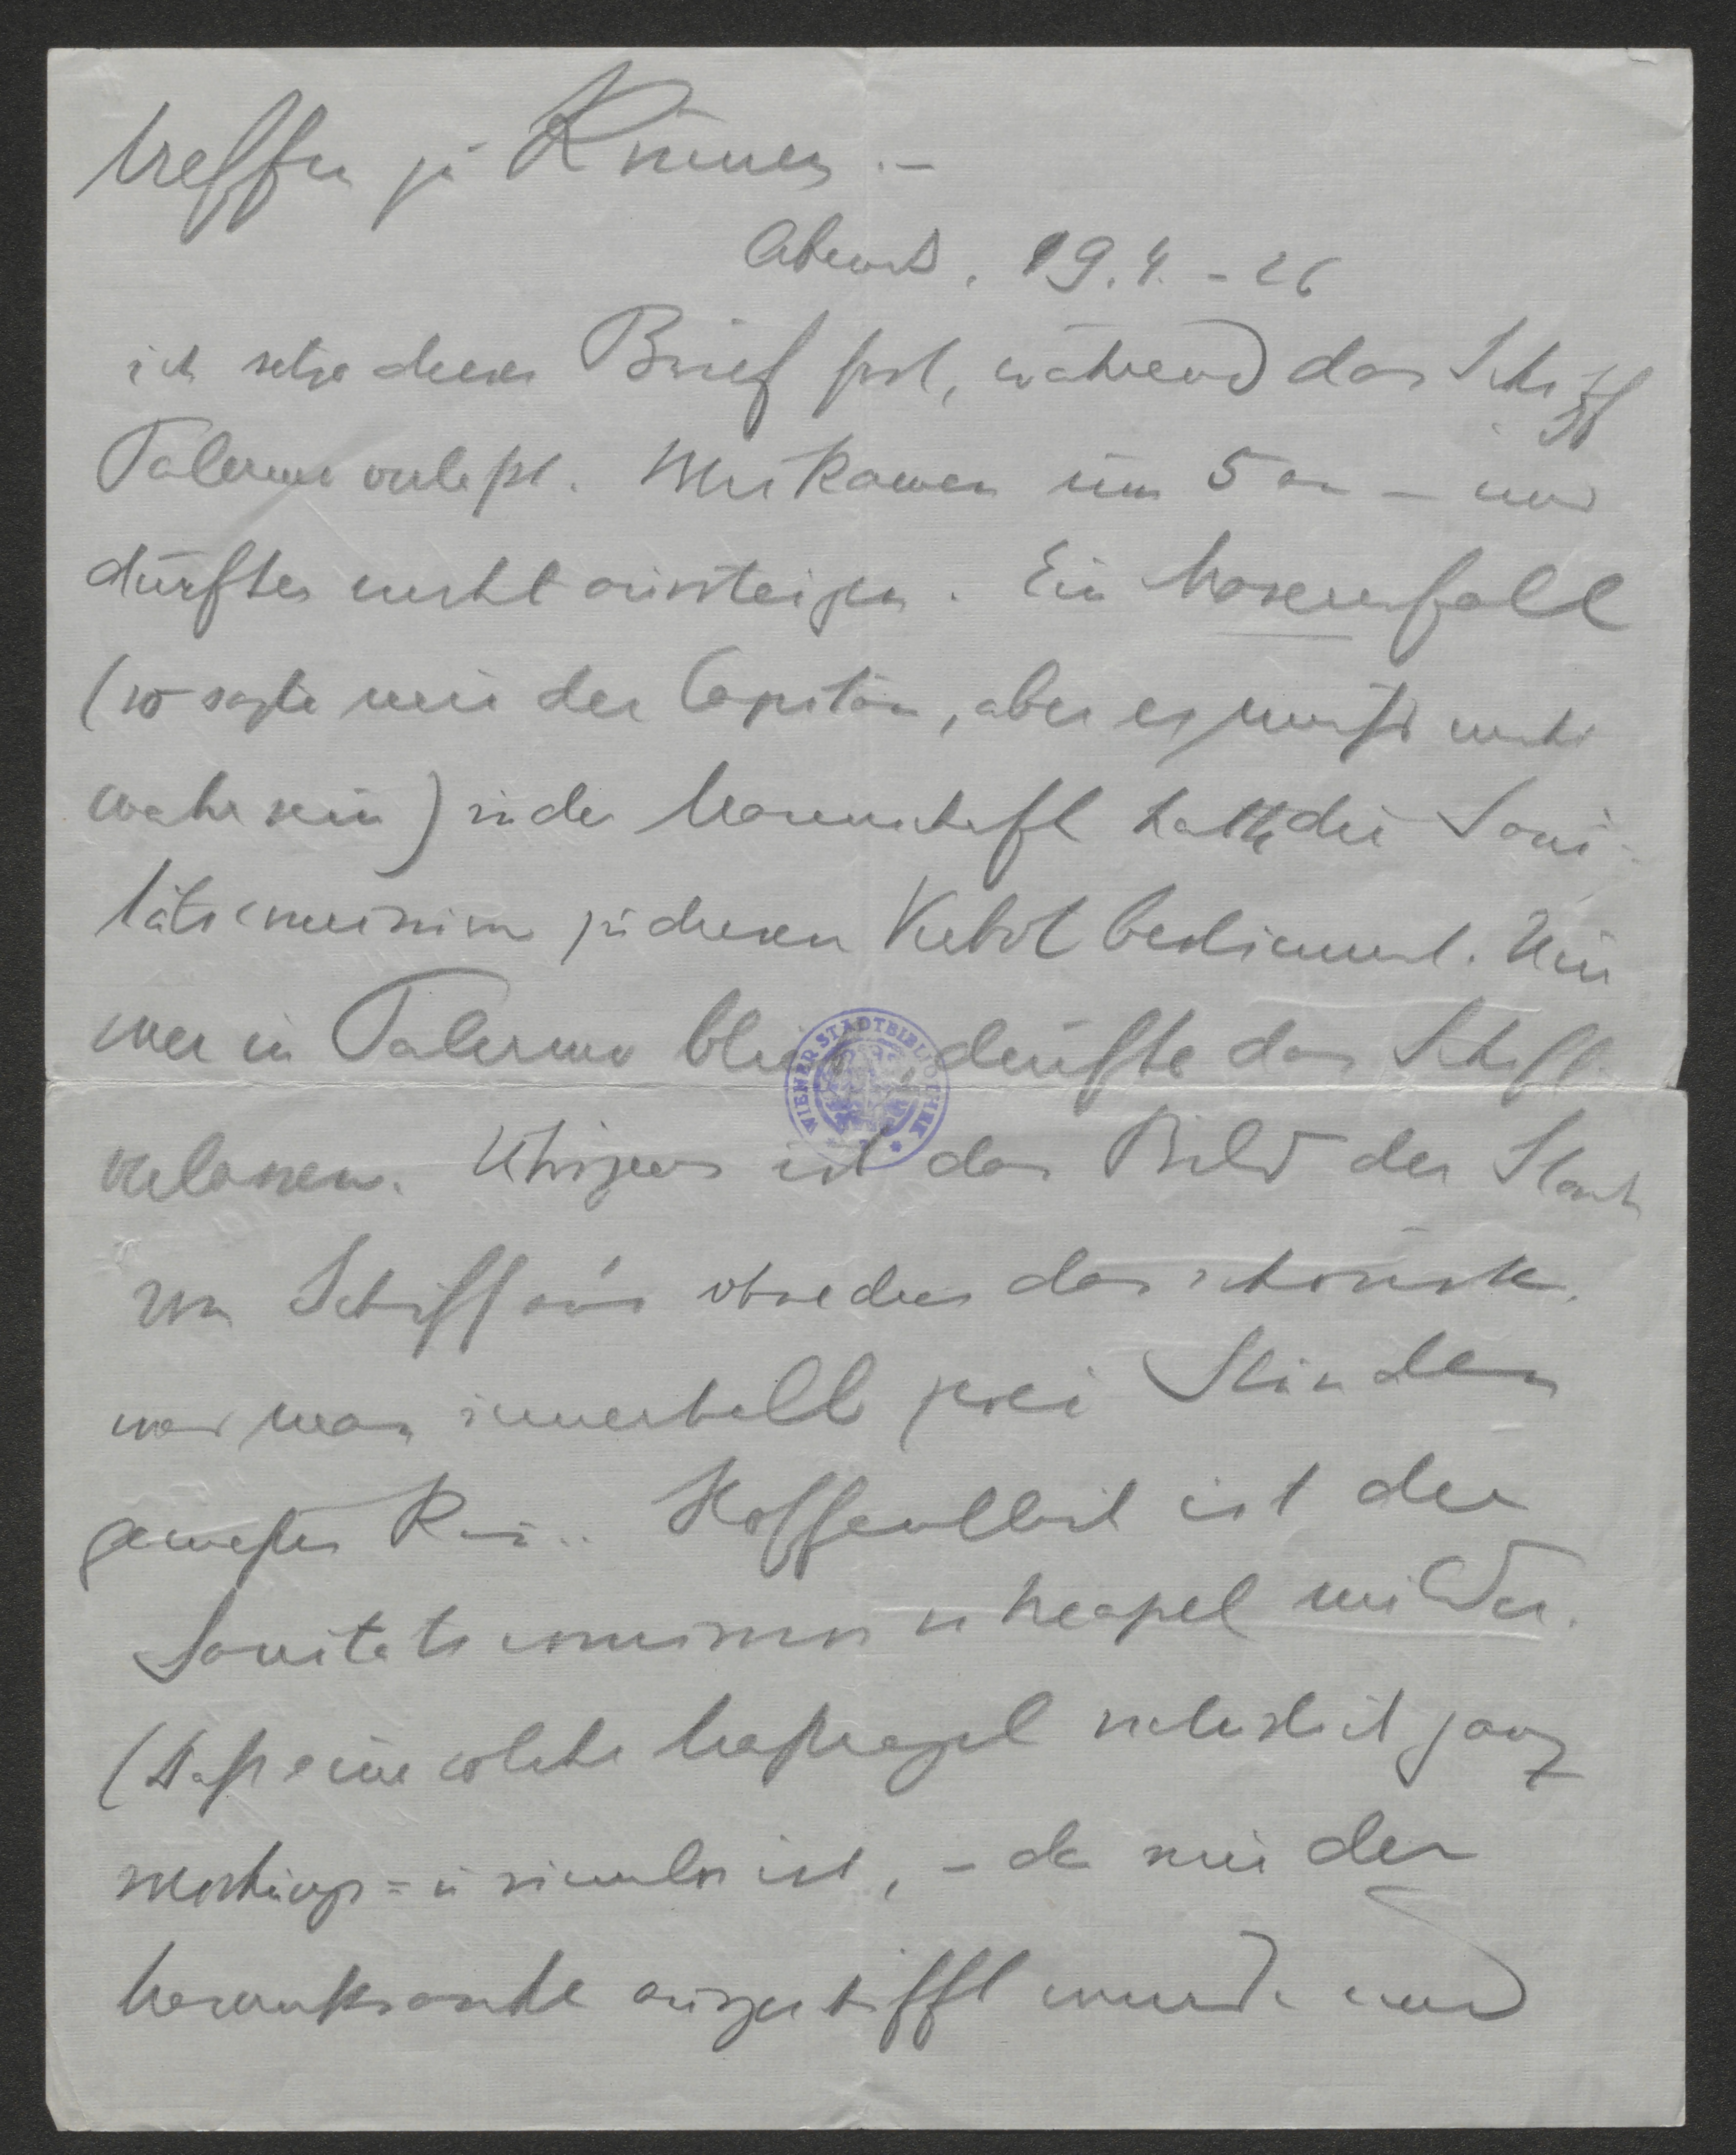 treffen zu können. –
Abends. 19. 4. – 26
ich setze diesen Brief fort, während das Schiff
Palermo verläßt. Wir kamen um 5 an – und
durften nicht aussteigen. Ein Masernfall
(so sagte mir der Capitän, aber es muß nicht
wahr sein) in der Mannschaft hatte die Sani-
tätscommission zu diesem Verbot bestimmt. Nur
wer in Palermo blieb, durfte das Schiff
verlassen. Übrigens ist das Bild der Stadt
vom Schiff aus ohnedies das schönste.
was man innerhalb zwei Stunden
genießen kann. Hoffentlich ist die
Sanitätscommission in Neapel milder.
(Daß eine solche Maßregel natürlich ganz
wirkungs- u sinnlos ist, – da nur der
Masernkranke ausgeschifft wurde und
WIENER STADTBIBLIOTHEK